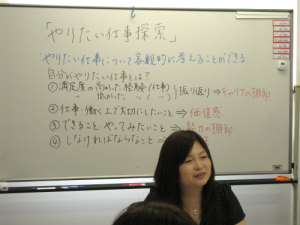 「やりたい仕事探索」
やりたい仕事について客観的に考えることができる。
自分がやりたい仕事とは?
①満足度の高かった経験(仕事)
低かった 〃 ( 〃 )
振り返り⇒キャリアの棚卸
②仕事・働く上で大切にしたこと⇒価値感
③できること・やってみたいこと⇒能力の棚卸
④しなければならないこと⇒